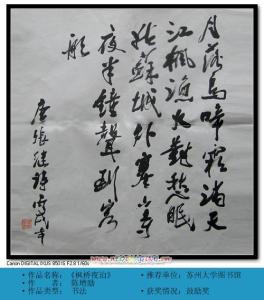 月落烏啼霜滿天
江楓漁火對愁眠
姑蘇城外寒山寺
夜半鐘聲到客
船
唐張繼詩
Canon DIGITAL IXUS 850 IS F2.8 1/60s
·作品名称：《枫桥夜泊》 ·推荐单位：苏州大学图书馆
·作 者： 陈增勋
·作品类型： 书法 ·获奖情况：鼓励奖